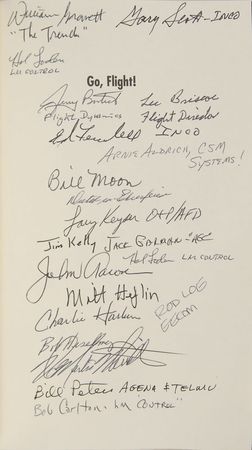 William Gravett
Gary Scott - INCO
"The Trench"
Hal Loden
LM CONTROL
Go, Flight!
Jerry Bostick
Lee Briscoe
Flight Dynamics
Flight Director
Ed Fendell INCO
ARNIE ALDRICH, CSM
SYSTEMS!
Bill Moon
Larry Keyser
JIM KELLY
JACK
Hal Loden LM CONTROL
John Aaron
Matt Heflin
ROD LOE
EECOM
Charlie Harlan
Bill Peters AGENA & TELMU
Bob Carlton. LM "CONTROL"